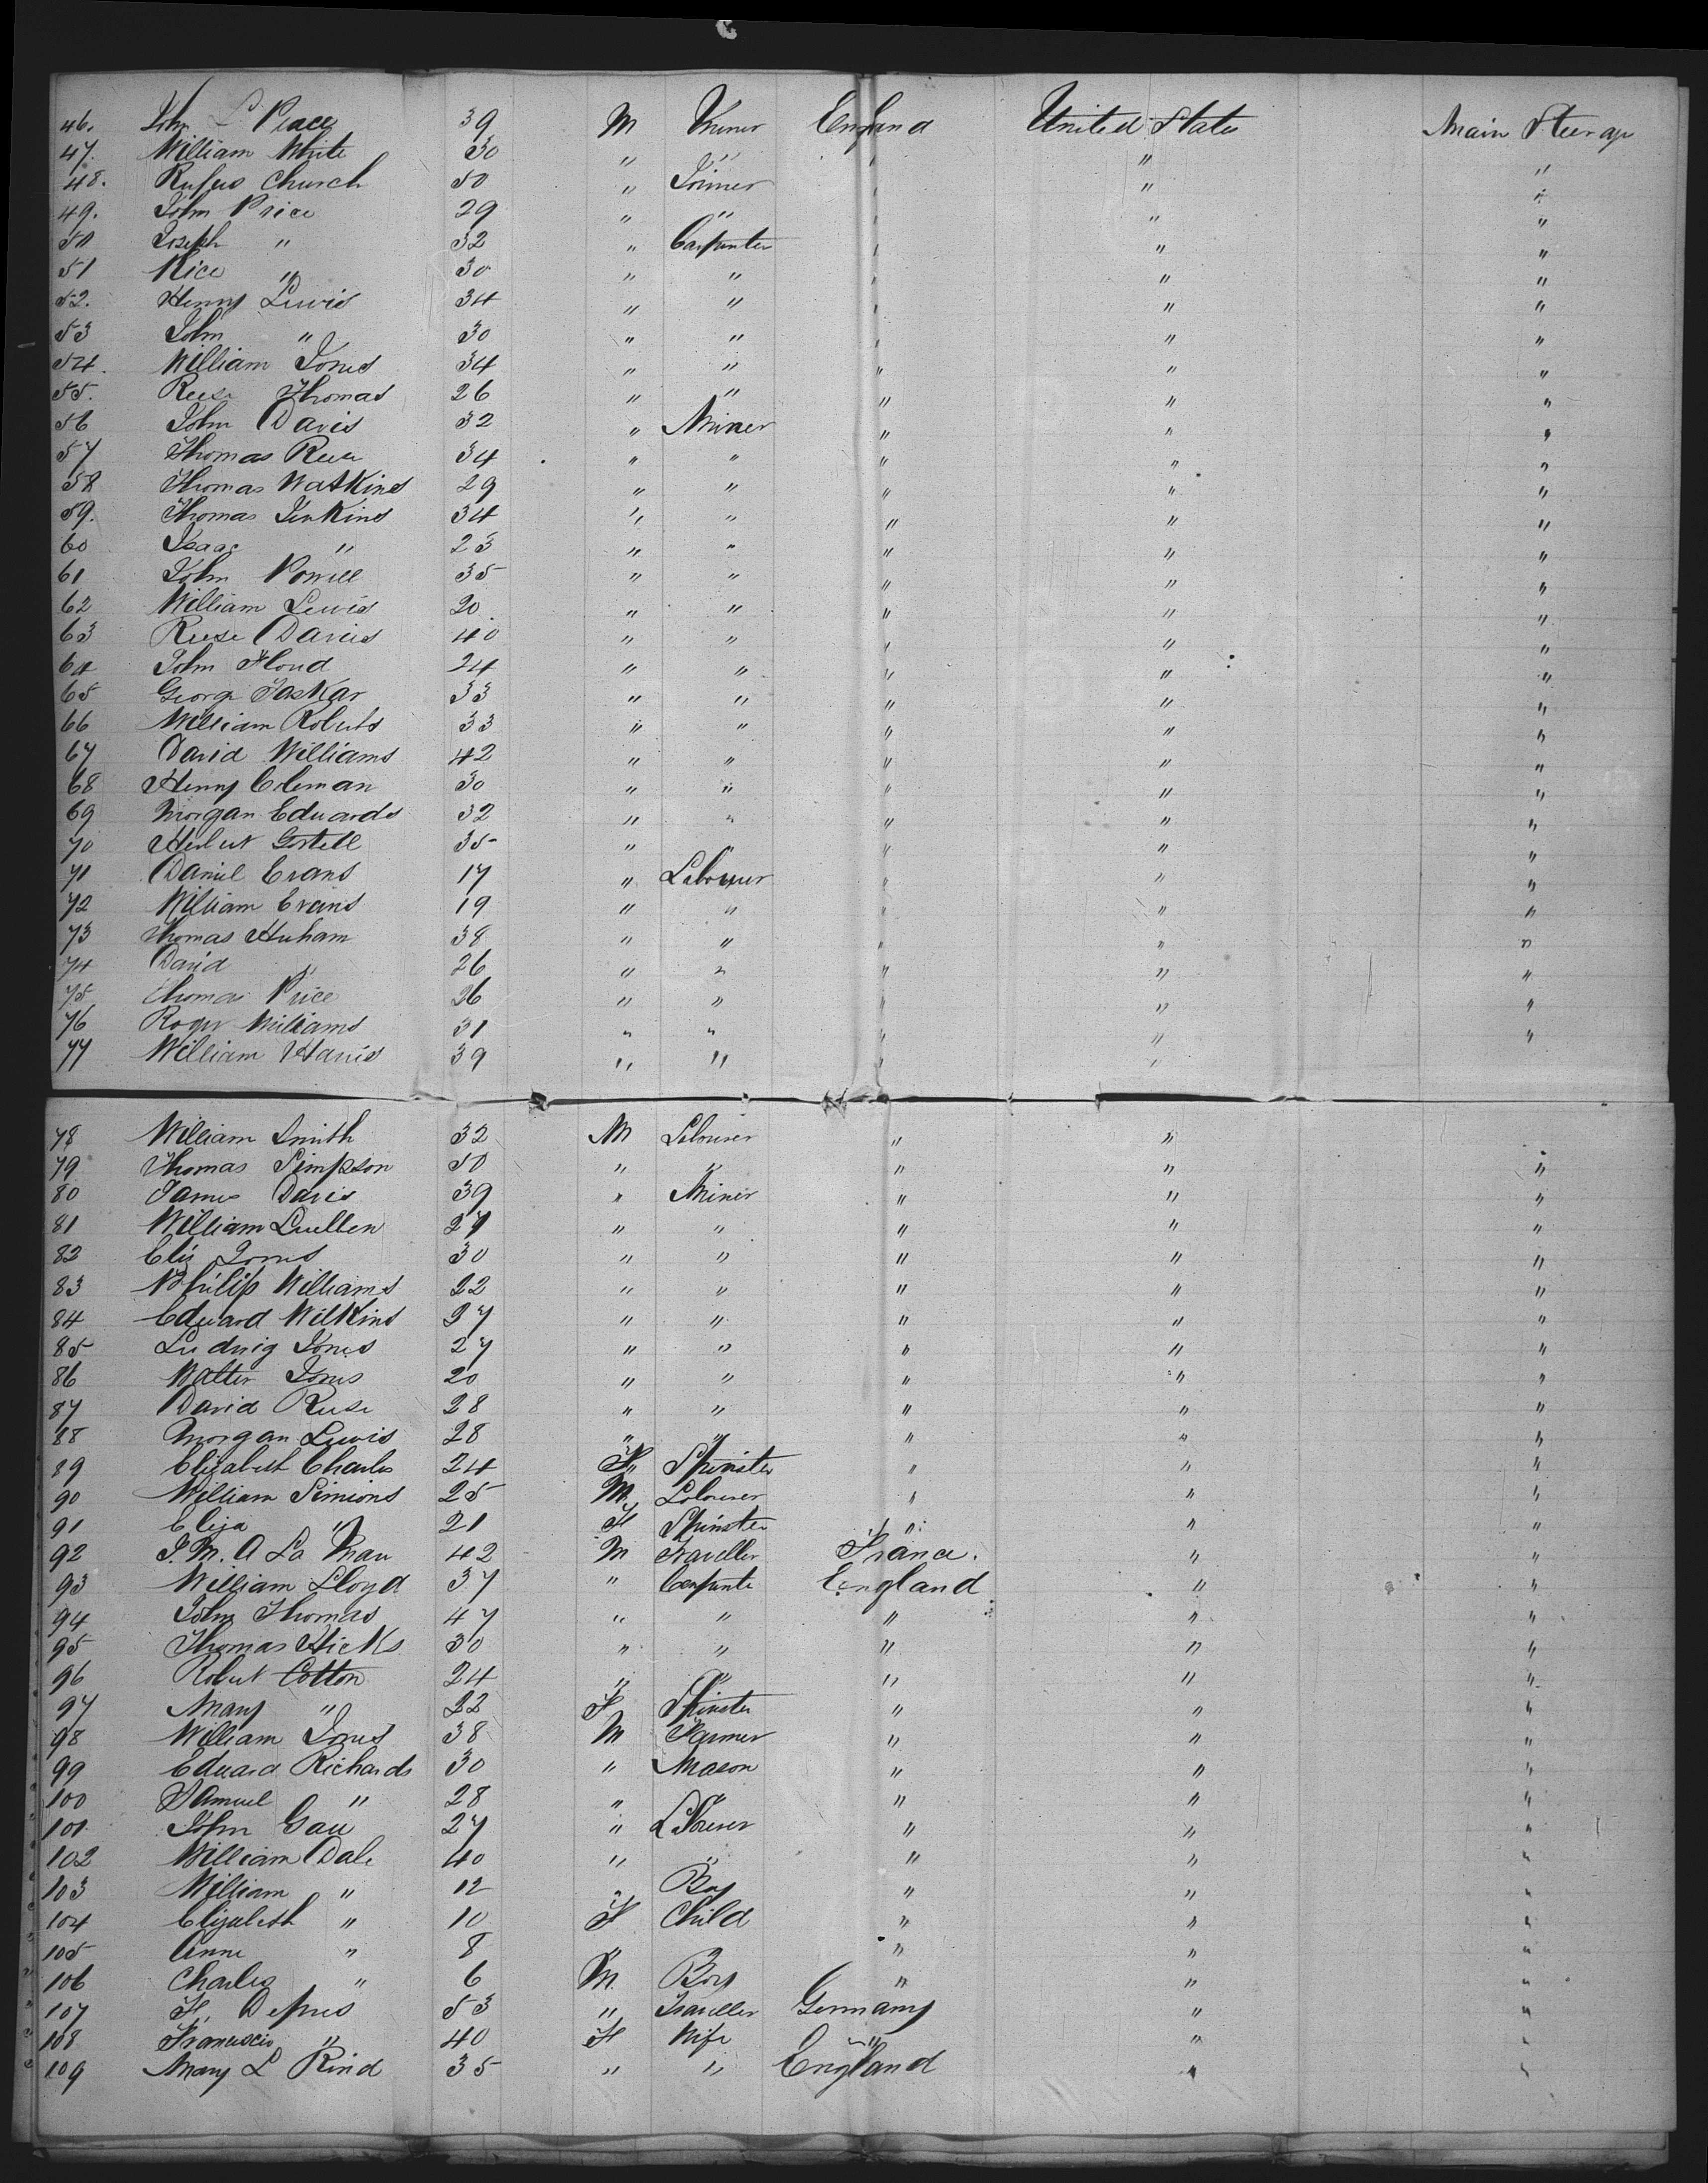 46. John L Place 39 M Miner England United States Main Steerage
47. William White 30 " " " " "
48. Rufus Church 50 " Joiner " " "
49. John Price 29 " " " " "
50 Joseph " 32 " Carpenter " " "
51 Rice " 30 " " " " "
52. Henry Lewis 34 " " " " "
53 John " 30 " " " " "
54. William Jones 34 " " " " "
55. Reese Thomas 26 " " " " "
56 John Davis 32 " Miner " " "
57 Thomas Reese 34 " " " " "
58 Thomas Watkins 29 " " " " "
59. Thomas Jenkins 34 " " " " "
60 Isaac " 23 " " " " "
61 John Powell 35 " " " " "
62 William Lewis 20 " " " " "
63 Reese Davies 40 " " " " "
64 John Floud 24 " " " " "
65 George Taskar 33 " " " " "
66 William Roberts 33 " " " " "
67 David Williams 42 " " " " "
68 Henry Coleman 30 " " " " "
69 Morgan Edwards 32 " " " " "
70 Herbert 35 " " " " "
71 Daniel Evans 17 " Labourer " " "
72 William Evans 19 " " " " "
73 Thomas 38 " " " " "
74 David " 26 " " " " "
75 Thomas Price 26 " " " " "
76 Roger Williams 31 " " " " "
77 William Harris 39 " " " "
78 William Smith 32 M Labourer " "
79 Thomas Simpson 50 " " " " "
80 James Davis 39 " Miner " " "
81 William Luellen 27 " " " " "
82 Elis Jones 30 " " " " "
83 Philip Williams 22 " " " " "
84 Edward Wilkins 27 " " " " "
85 Ludwig Jones 27 " " " " "
86 Walter Jones 20 " " " " "
87 David Reese 28 " " " " "
88 Morgan Lewis 28 " " " " "
89 Elizabeth Charles 24 F Spinster " " "
90 William Simions 25 M Labourer " " "
91 Eliza " 21 F Spinster " " "
92 J. M. A La 42 M Traveller France. " "
93 William Lloyd 37 " Carpente England " "
94 John Thomas 47 " " " " "
95 Thomas Hicks 30 " " " " "
96 Robert Cotton 24 " " " " "
97 Mary " 22 F Spinster " " "
98 William Jones 38 M Farmer " " "
99 Edward Richards 30 " Mason " " "
100 Samuel " 28 " " " " "
101 John Gau 27 " Labourer " " "
102 William Dale 40 " " " " "
103 William " 12 " Boy " " "
104 Elizabeth " 10 F Child " " "
105 Anne " 8 " " " "
106 Charles " 6 M. Boy " " "
107 53 " Traveller Germany " "
108 " 40 F Wife " " "
109 Mary L Rind 35 " " England " "